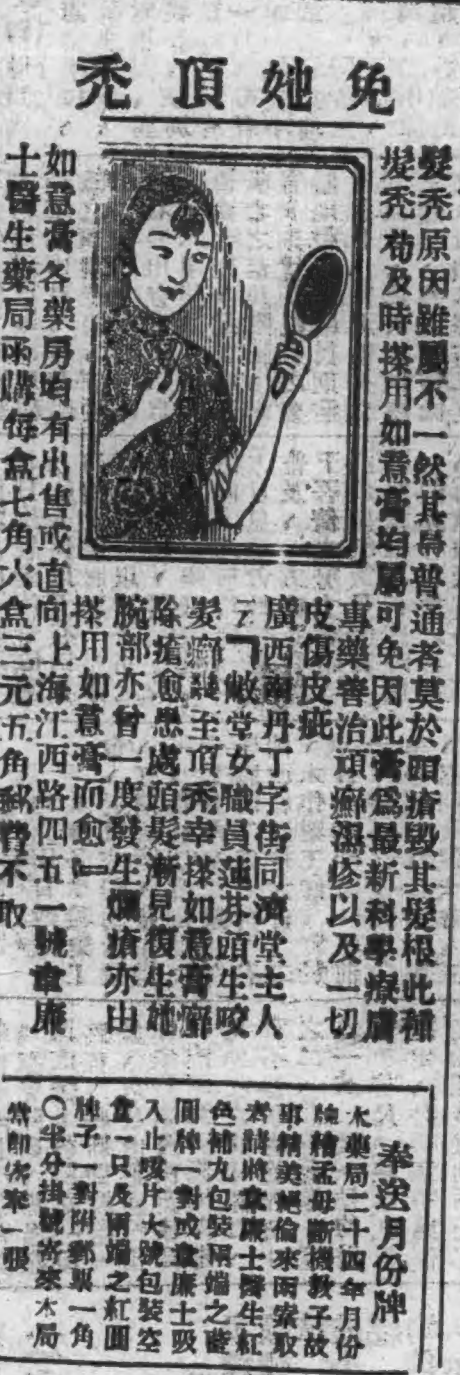 免她頂禿
髮禿原因雖屬不一然其為普通者莫於頭瘡毀其髮根此種
髮禿苟及時搽用如意膏均屬可免因此膏為最新科學療膚
專藥善治頑癬濕疹以及一切
皮傷皮疵
廣西南丹丁字街同濟堂主人
云「敝堂女職員蓮芬頭生咬
髮癬 至頂禿幸搽如意膏癬
除瘡愈患處頭髮漸見復生她
腕部亦曾一度發生爛瘡亦由
搽用如意膏而愈」
如意膏各藥房均有出售或直向上海江西路四五一號韋廉
士醫生藥局函購每盒七角六盒三元五角郵費不取
奉送月份牌
本藥局二十四年月份
牌繪孟母斷機教子故
事精美絕倫來函索取
者請將韋廉士醫生紅
色補丸包裝兩端之藍
圓牌一對或韋廉士吸
入止咳片大號包裝空
盒一只及兩端之紅圓
牌子一對附郵票一角
〇半分掛號寄來本局
當 寄奉一張